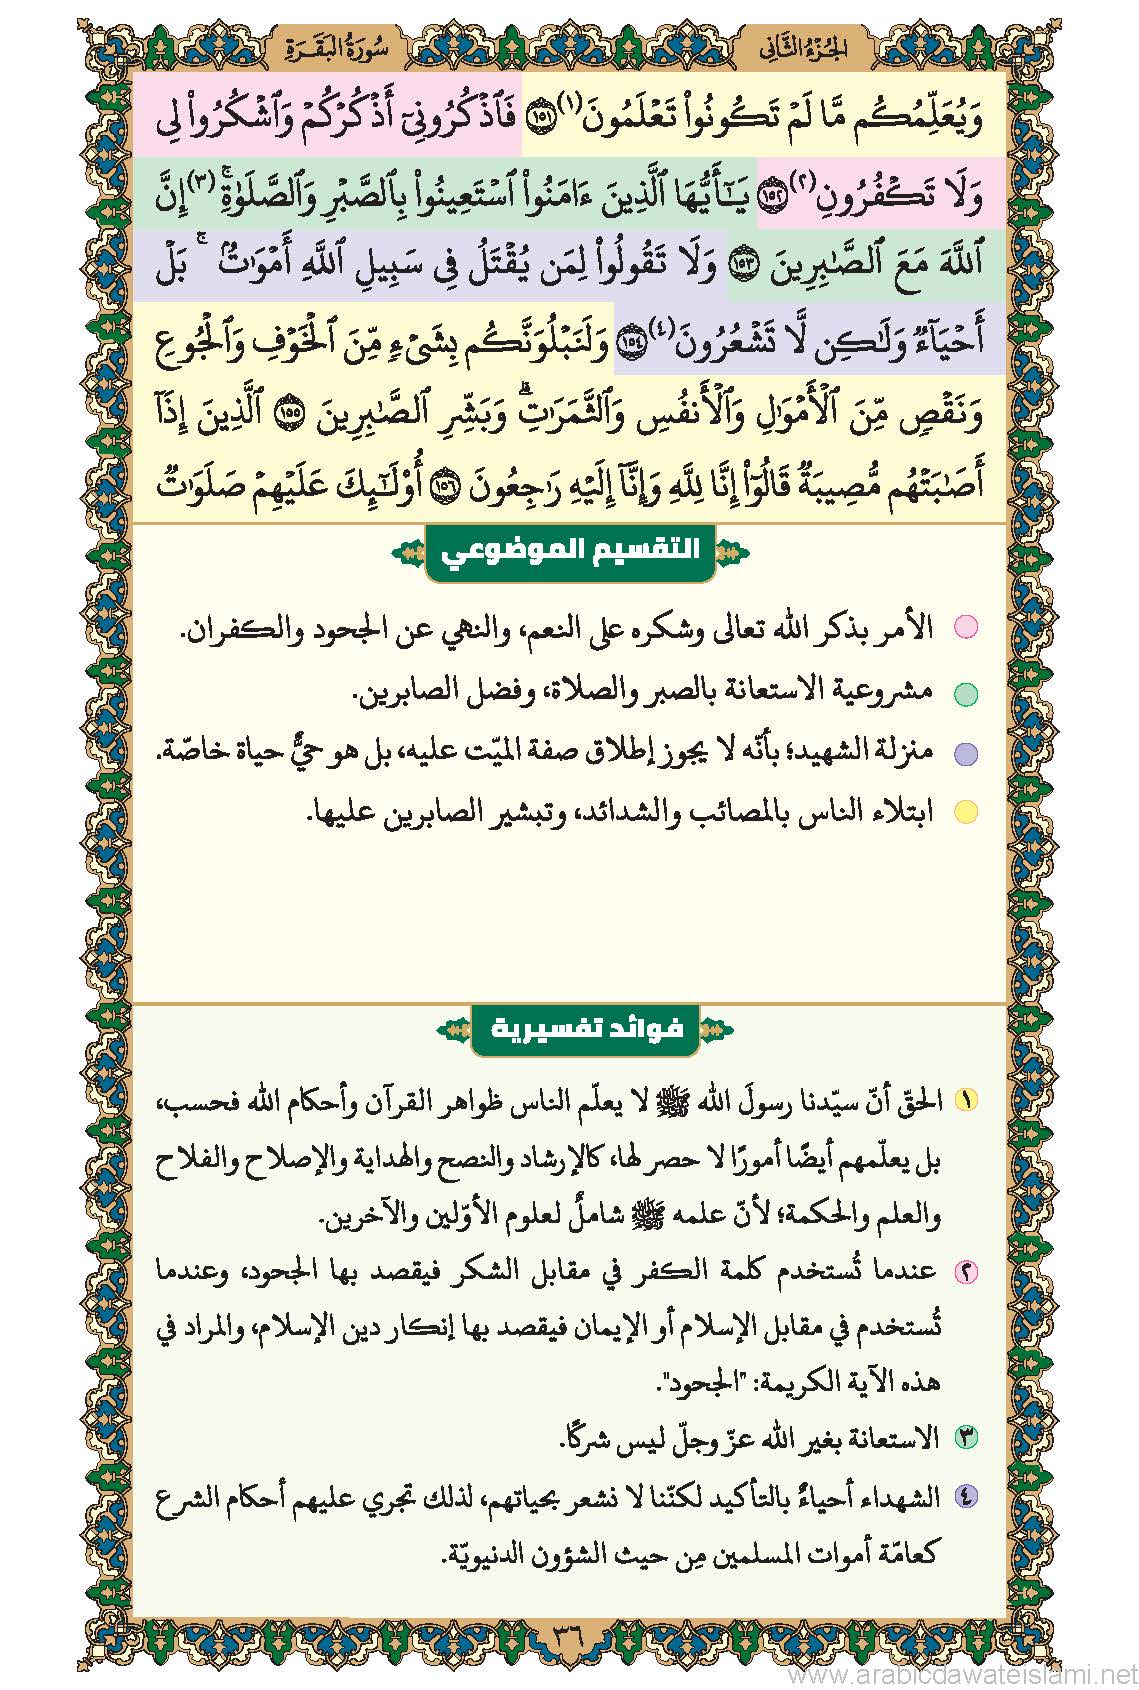 الجُزءُ الثَّانِي
سُورَةُ البَقَرَةِ
وَيُعَلِّمُكُم مَّا لَمۡ تَكُونُواْ تَعۡلَمُونَ(١) ١٥١ فَٱذۡكُرُونِيٓ أَذۡكُرۡكُمۡ وَٱشۡكُرُواْ لِي
وَلَا تَكۡفُرُونِ(٢) ١٥٢ يَـٰٓأَيُّهَا ٱلَّذِينَ ءَامَنُواْ ٱسۡتَعِينُواْ بِٱلصَّبۡرِ وَٱلصَّلَوٰةِۚ(٣) إِنَّ
ٱللَّهَ مَعَ ٱلصَّـٰبِرِينَ ١٥٣ وَلَا تَقُولُواْ لِمَن يُقۡتَلُ فِي سَبِيلِ ٱللَّهِ أَمۡوَٰتُۢۚ بَلۡ
أَحۡيَآءٞ وَلَـٰكِن لَّا تَشۡعُرُونَ(٤) ١٥٤ وَلَنَبۡلُوَنَّكُم بِشَيۡءٖ مِّنَ ٱلۡخَوۡفِ وَٱلۡجُوعِ
وَنَقۡصٖ مِّنَ ٱلۡأَمۡوَٰلِ وَٱلۡأَنفُسِ وَٱلثَّمَرَٰتِۗ وَبَشِّرِ ٱلصَّـٰبِرِينَ ١٥٥ ٱلَّذِينَ إِذَآ
أَصَـٰبَتۡهُم مُّصِيبَةٞ قَالُوٓاْ إِنَّا لِلَّهِ وَإِنَّآ إِلَيۡهِ رَٰجِعُونَ ١٥٦ أُوْلَـٰٓئِكَ عَلَيۡهِمۡ صَلَوَٰتٞ
التقسيم الموضوعي
الأمر بذكر الله تعالى وشكره على النعم، والنهي عن الجحود والكفران.
مشروعية الاستعانة بالصبر والصلاة، وفضل الصابرين.
منزلة الشهيد؛ بأنّه لا يجوز إطلاق صفة الميّت عليه، بل هو حيٌّ حياة خاصّة.
ابتلاء الناس بالمصائب والشدائد، وتبشير الصابرين عليها.
فوائد تفسيرية
١ الحقّ أنّ سيّدنا رسولَ الله ﷺ لا يعلّم الناس ظواهر القرآن وأحكام الله فحسب،
بل يعلّمهم أيضًا أمورًا لا حصر لها، كالإرشاد والنصح والهداية والإصلاح والفلاح
والعلم والحكمة؛ لأنّ علمه ﷺ شاملٌ لعلوم الأوّلين والآخرين.
٢ عندما تُستخدم كلمة الكفر في مقابل الشكر فيقصد بها الجحود، وعندما
تُستخدم في مقابل الإسلام أو الإيمان فيقصد بها إنكار دين الإسلام، والمراد في
هذه الآية الكريمة: "الجحود".
٣ الاستعانة بغير الله عزّ وجلّ ليس شركًا.
٤ الشهداء أحياءٌ بالتأكيد لكنّنا لا نشعر بحياتهم، لذلك تجري عليهم أحكام الشرع
كعامّة أموات المسلمين مِن حيث الشؤون الدنيويّة.
٣٦
www.arabicdawateislami.net